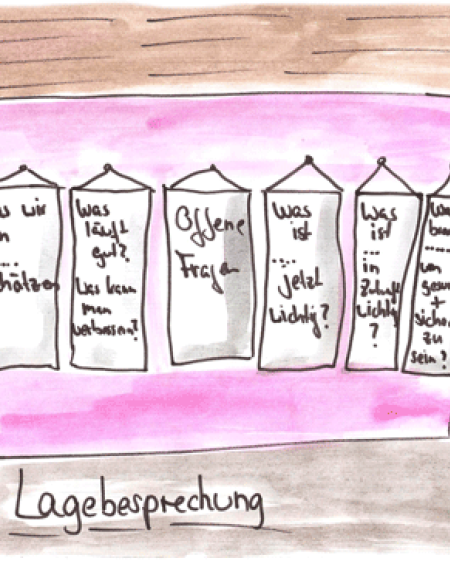 wir
schätzen
Was
läuft
gut?
Was kann
man
verbessern?
Offene
Fragen
Was
ist
....
jetzt
wichtig?
Was
ist
....
in
Zukunft
wichtig
?
.....
um
gesund
+
sicher
zu
sein?
Lagebesprechung